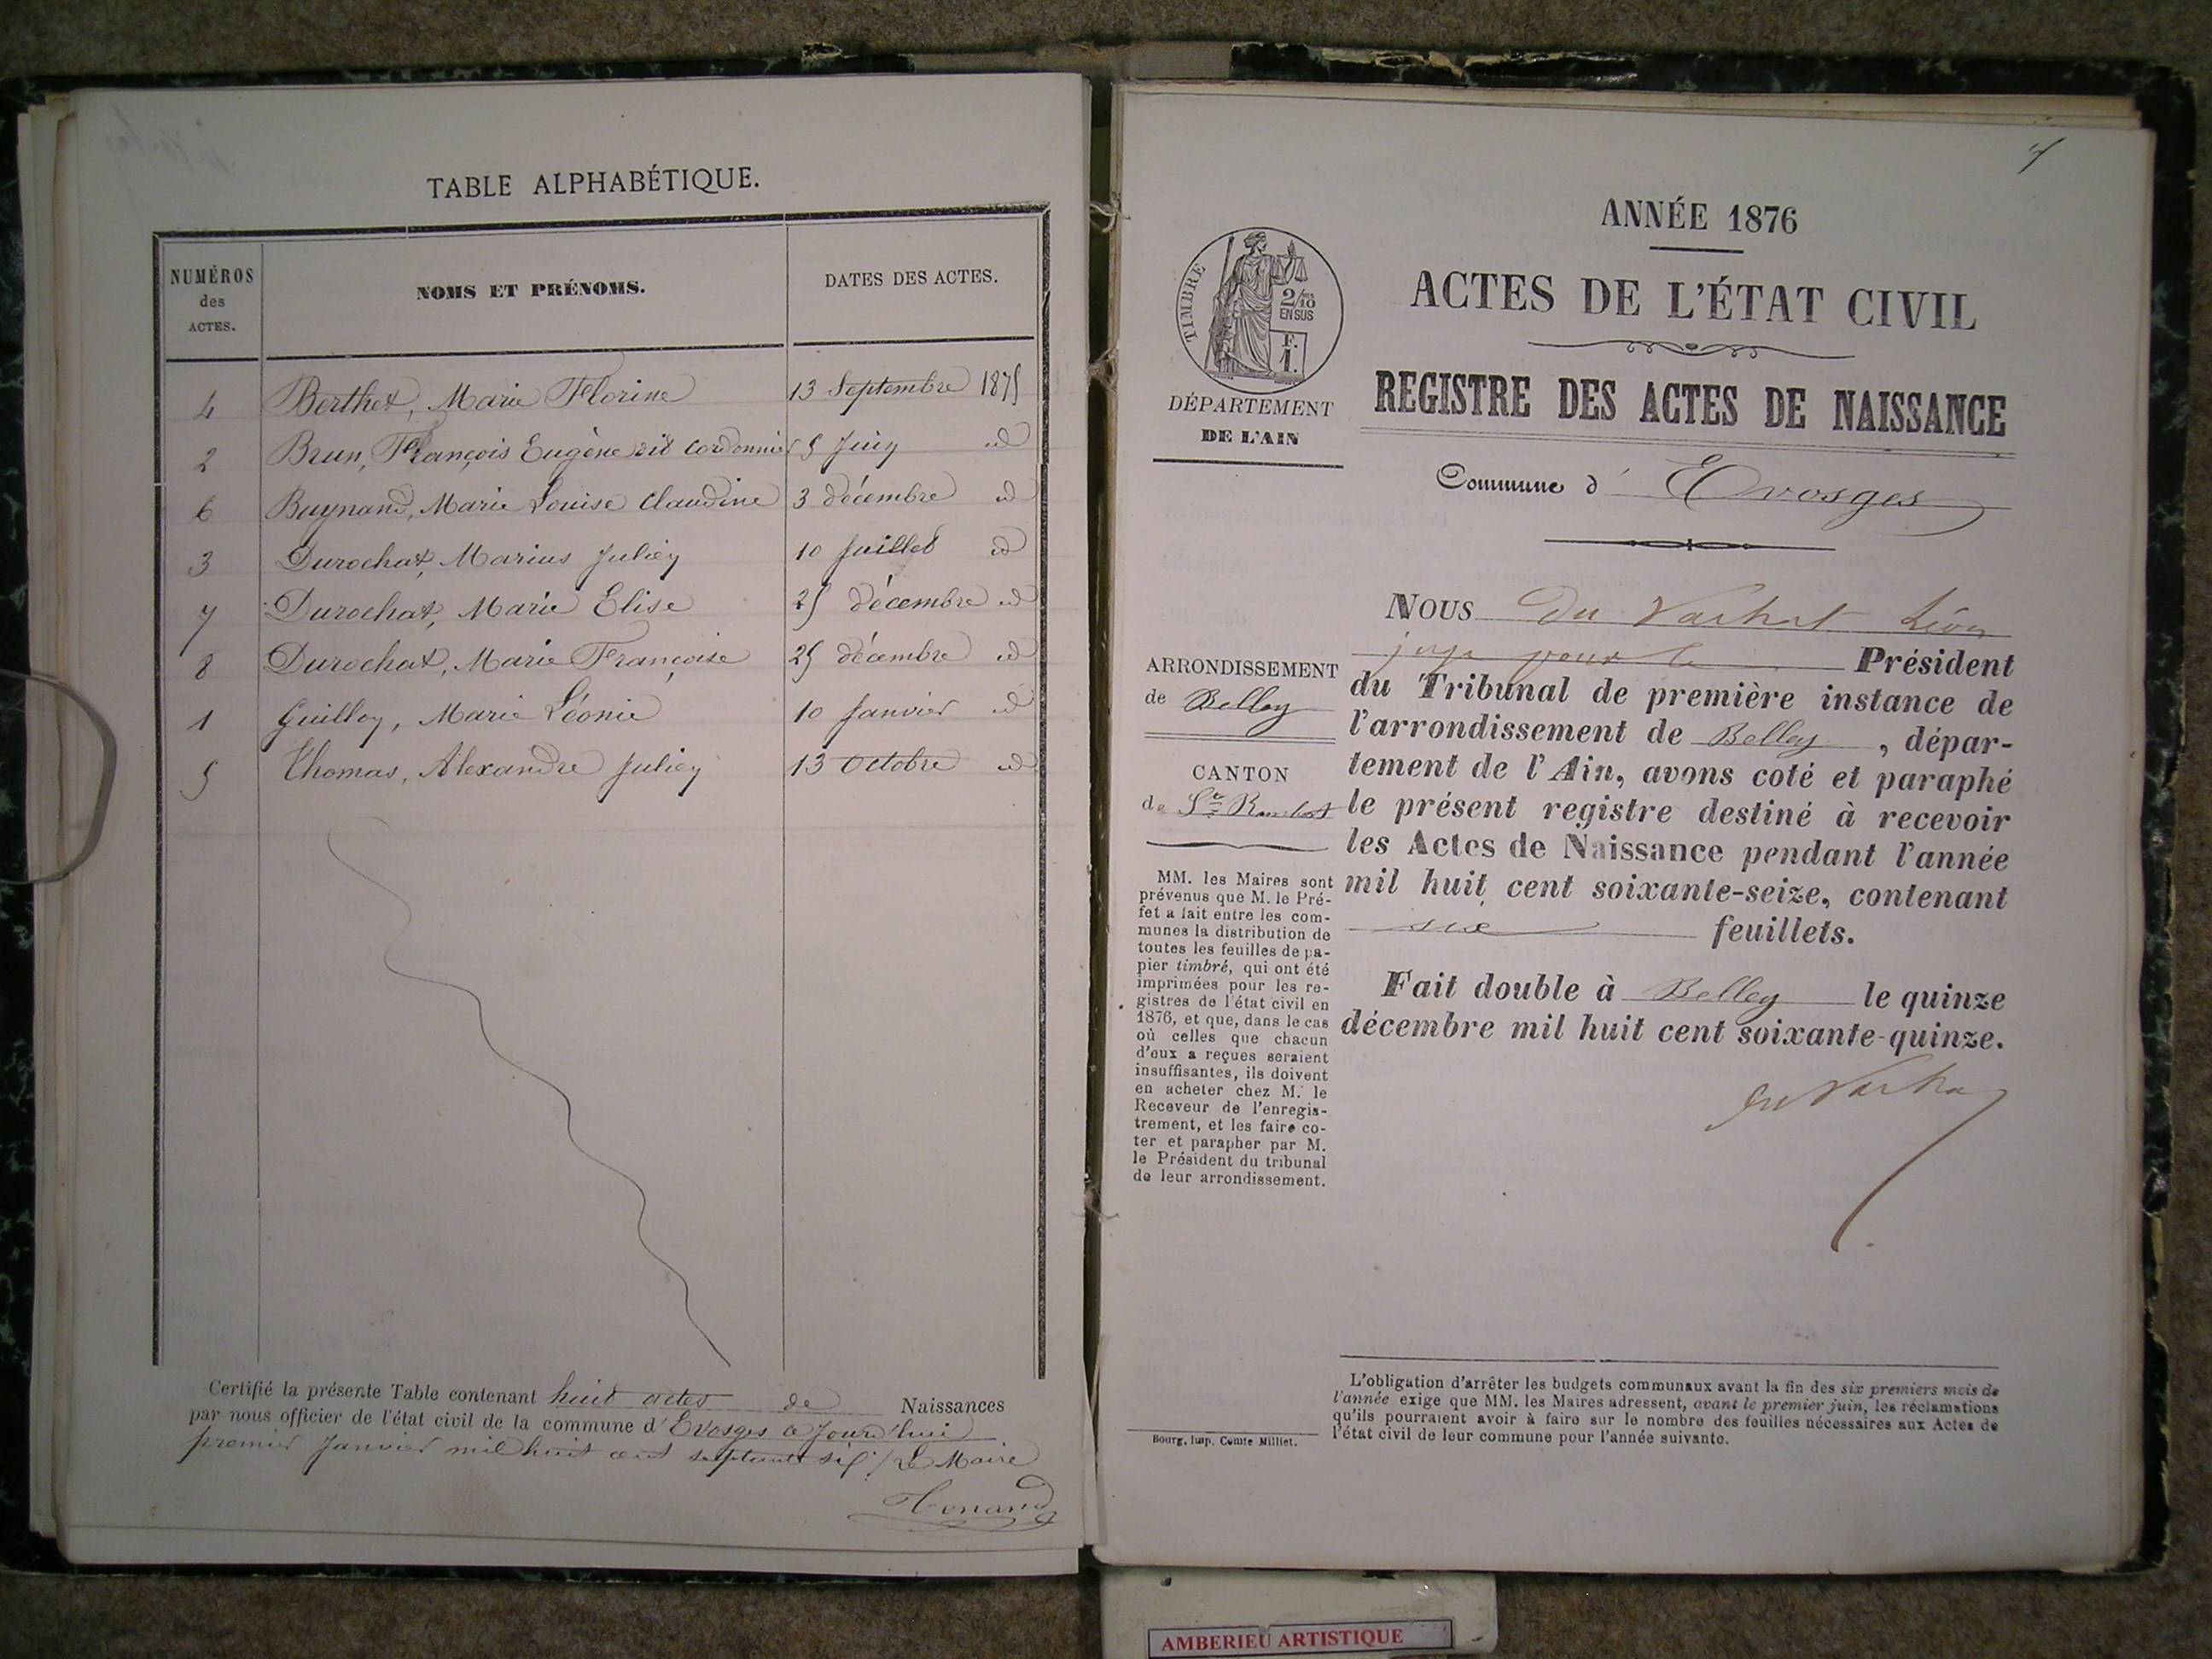 TABLE ALPHABÉTIQUE.
NUMÉROS des ACTES. NOMS ET PRÉNOMS. DATES DES ACTES.
4 Berthet, Marie Florine 13 Septembre 1875
2 Brun, François Eugène dit Cordonnier 5 Juin id
6 Buynand, Marie Louise Claudine 3 décembre id
3 Durochat, Marius Julien 10 Juillet id
7 Durochat, Marie Elise 25 décembre id
8 Durochat, Marie Françoise 25 décembre id
1 Guilloy, Marie Léonie 10 Janvier id
5 Thomas, Alexandre Julien 13 Octobre id
Certifié la présente Table contenant huit actes de Naissances
par nous officier de l'état civil de la commune d'Evosges ce Jourd'hui
premier Janvier mil huit cent septante six / Le Maire
Tenand
ANNÉE 1876
ACTES DE L'ÉTAT CIVIL
REGISTRE DES ACTES DE NAISSANCE
Commune d' Evosges
TIMBRE
2/10
EN SUS
F.
1.
DÉPARTEMENT
DE L'AIN
ARRONDISSEMENT
de Belley
CANTON
de St Rambert
MM. les Maires sont
prévenus que M. le Pré-
fet a fait entre les com-
munes la distribution de
toutes les feuilles de pa-
pier timbré, qui ont été
imprimées pour les re-
gistres de l'état civil en
1876, et que, dans le cas
où celles que chacun
d'eux a reçues seraient
insuffisantes, ils doivent
en acheter chez M. le
Receveur de l'enregis-
trement, et les faire co-
ter et parapher par M.
le Président du tribunal
de leur arrondissement.
Bourg, Imp. Comte Milliet.
NOUS Du Vachat Léon
juge pour le Président
du Tribunal de première instance de
l'arrondissement de Belley, dépar-
tement de l'Ain, avons coté et paraphé
le présent registre destiné à recevoir
les Actes de Naissance pendant l'année
mil huit cent soixante-seize, contenant
six feuillets.
Fait double à Belley le quinze
décembre mil huit cent soixante-quinze.
du Vachat
L'obligation d'arrêter les budgets communaux avant la fin des six premiers mois de
l'année exige que MM. les Maires adressent, avant le premier juin, les réclamations
qu'ils pourraient avoir à faire sur le nombre des feuilles nécessaires aux Actes de
l'état civil de leur commune pour l'année suivante.
AMBERIEU ARTISTIQUE